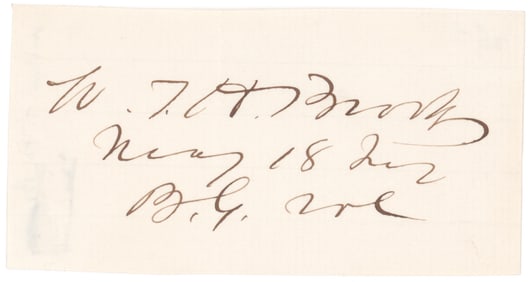 W. T. H. Brooks
Maj 18 Inf
B. G. Vol